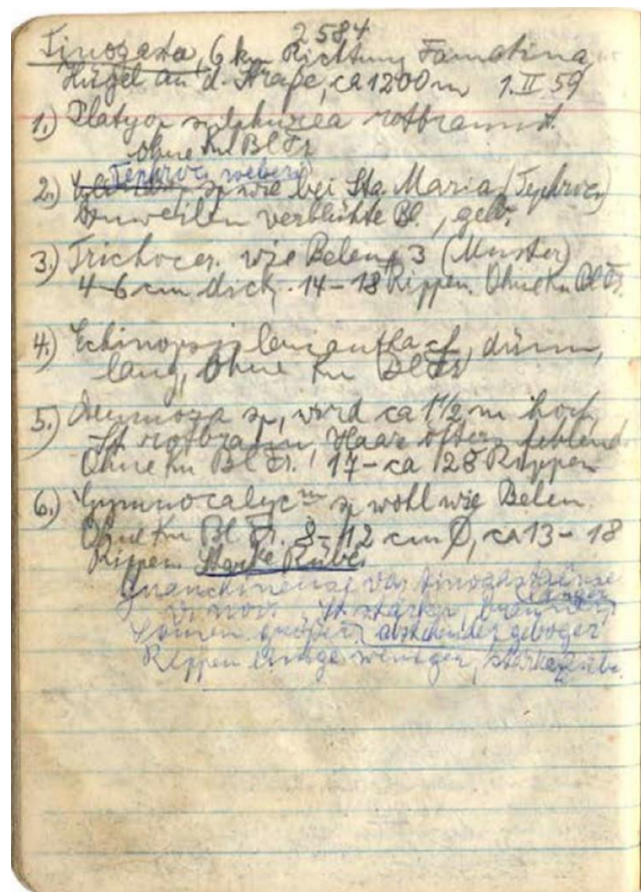 2584
Tinogasta, 6 km Richtung Famatina
Hügel an d. Straße, ca 1200 m 1.II 59
1.) Platyop. sp. rotbraun St.
ohne Kn Bl Fr
Tephroc. weberi
2.) sp. wie bei Sta. Maria (Tephroc)
Bisweilen verblühte Bl., gelb.
3.) Trichocer. wie Belen, 3 (Muster)
4-6 cm dick. 14-18 Rippen. Ohne Kn Bl Fr.
4.) Echinops. leucantha f, dünn,
lang, Ohne Kn Bl Fr
5.) Denmoza sp, wird ca 1½ m hoch,
St rotbraun, Haar öfters fehlend
Ohne Kn Bl Fr. 17 - ca 28 Rippen
6.) Gymnocalyc m sp wohl wie Belen.
Ohne Kn Bl Fr. 8-12 cm Ø, ca 13-18
Rippen. Starke Rübe.
var. tinogastense
v. nov. St stärker, länger
Samen größer, abstehender gebogen
Rippen einige weniger, starke Rübe.